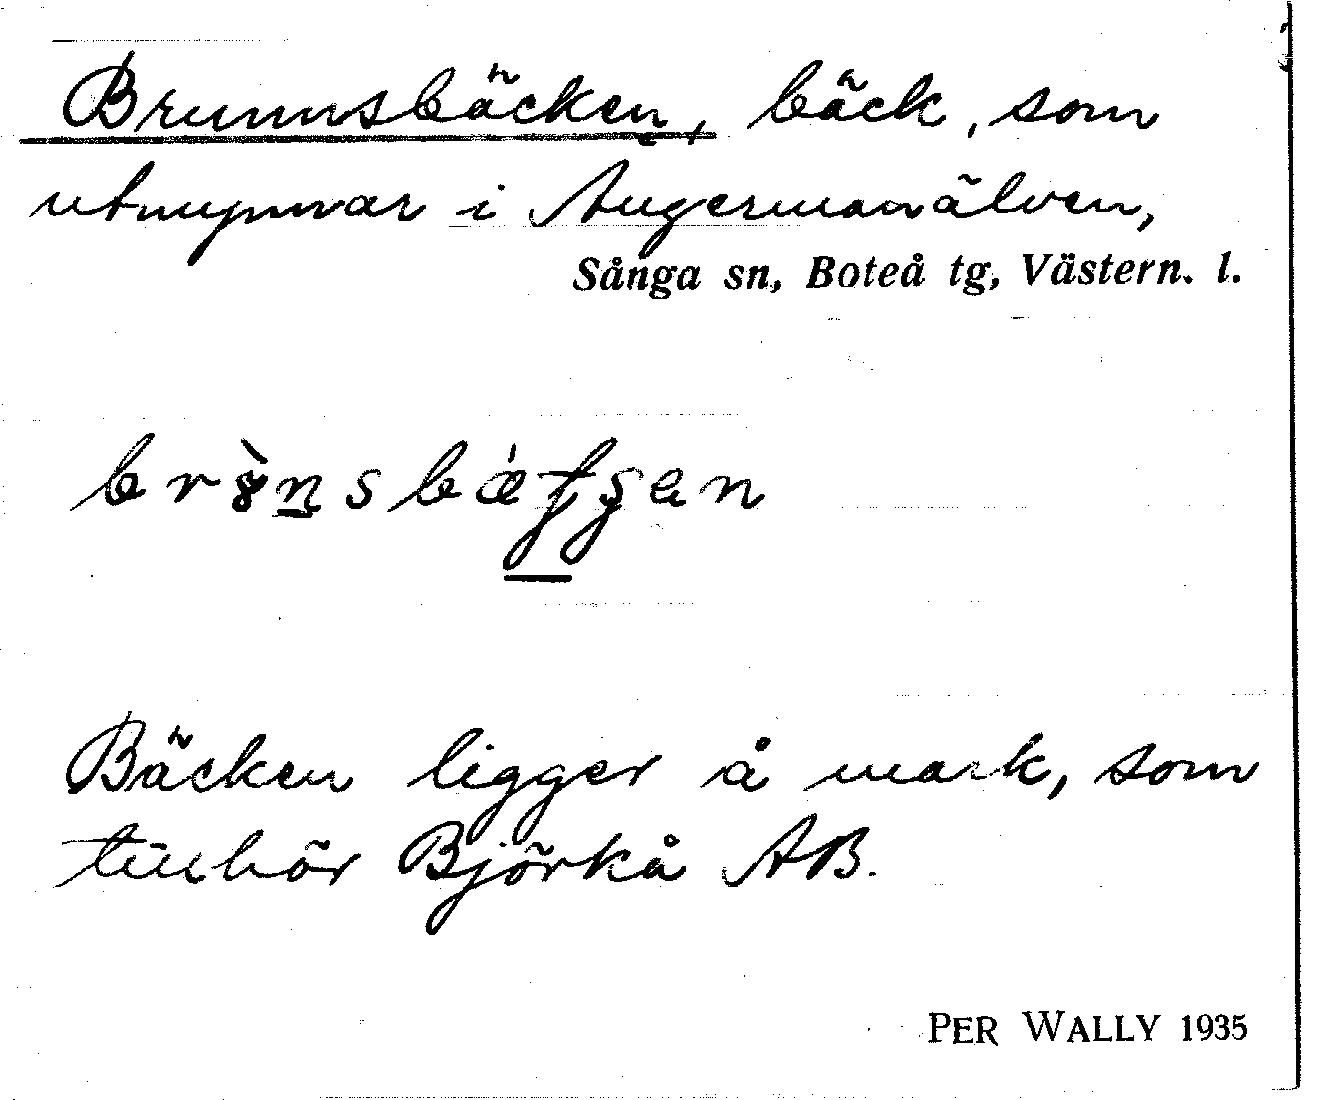 Brunnsbäcken, bäck, som
utmynnar i Ångermanälven,
Sånga sn, Boteå tg, Västern. l.
Bäcken ligger å mark, som
tillhör Björkå AB.
PER WALLY 1935